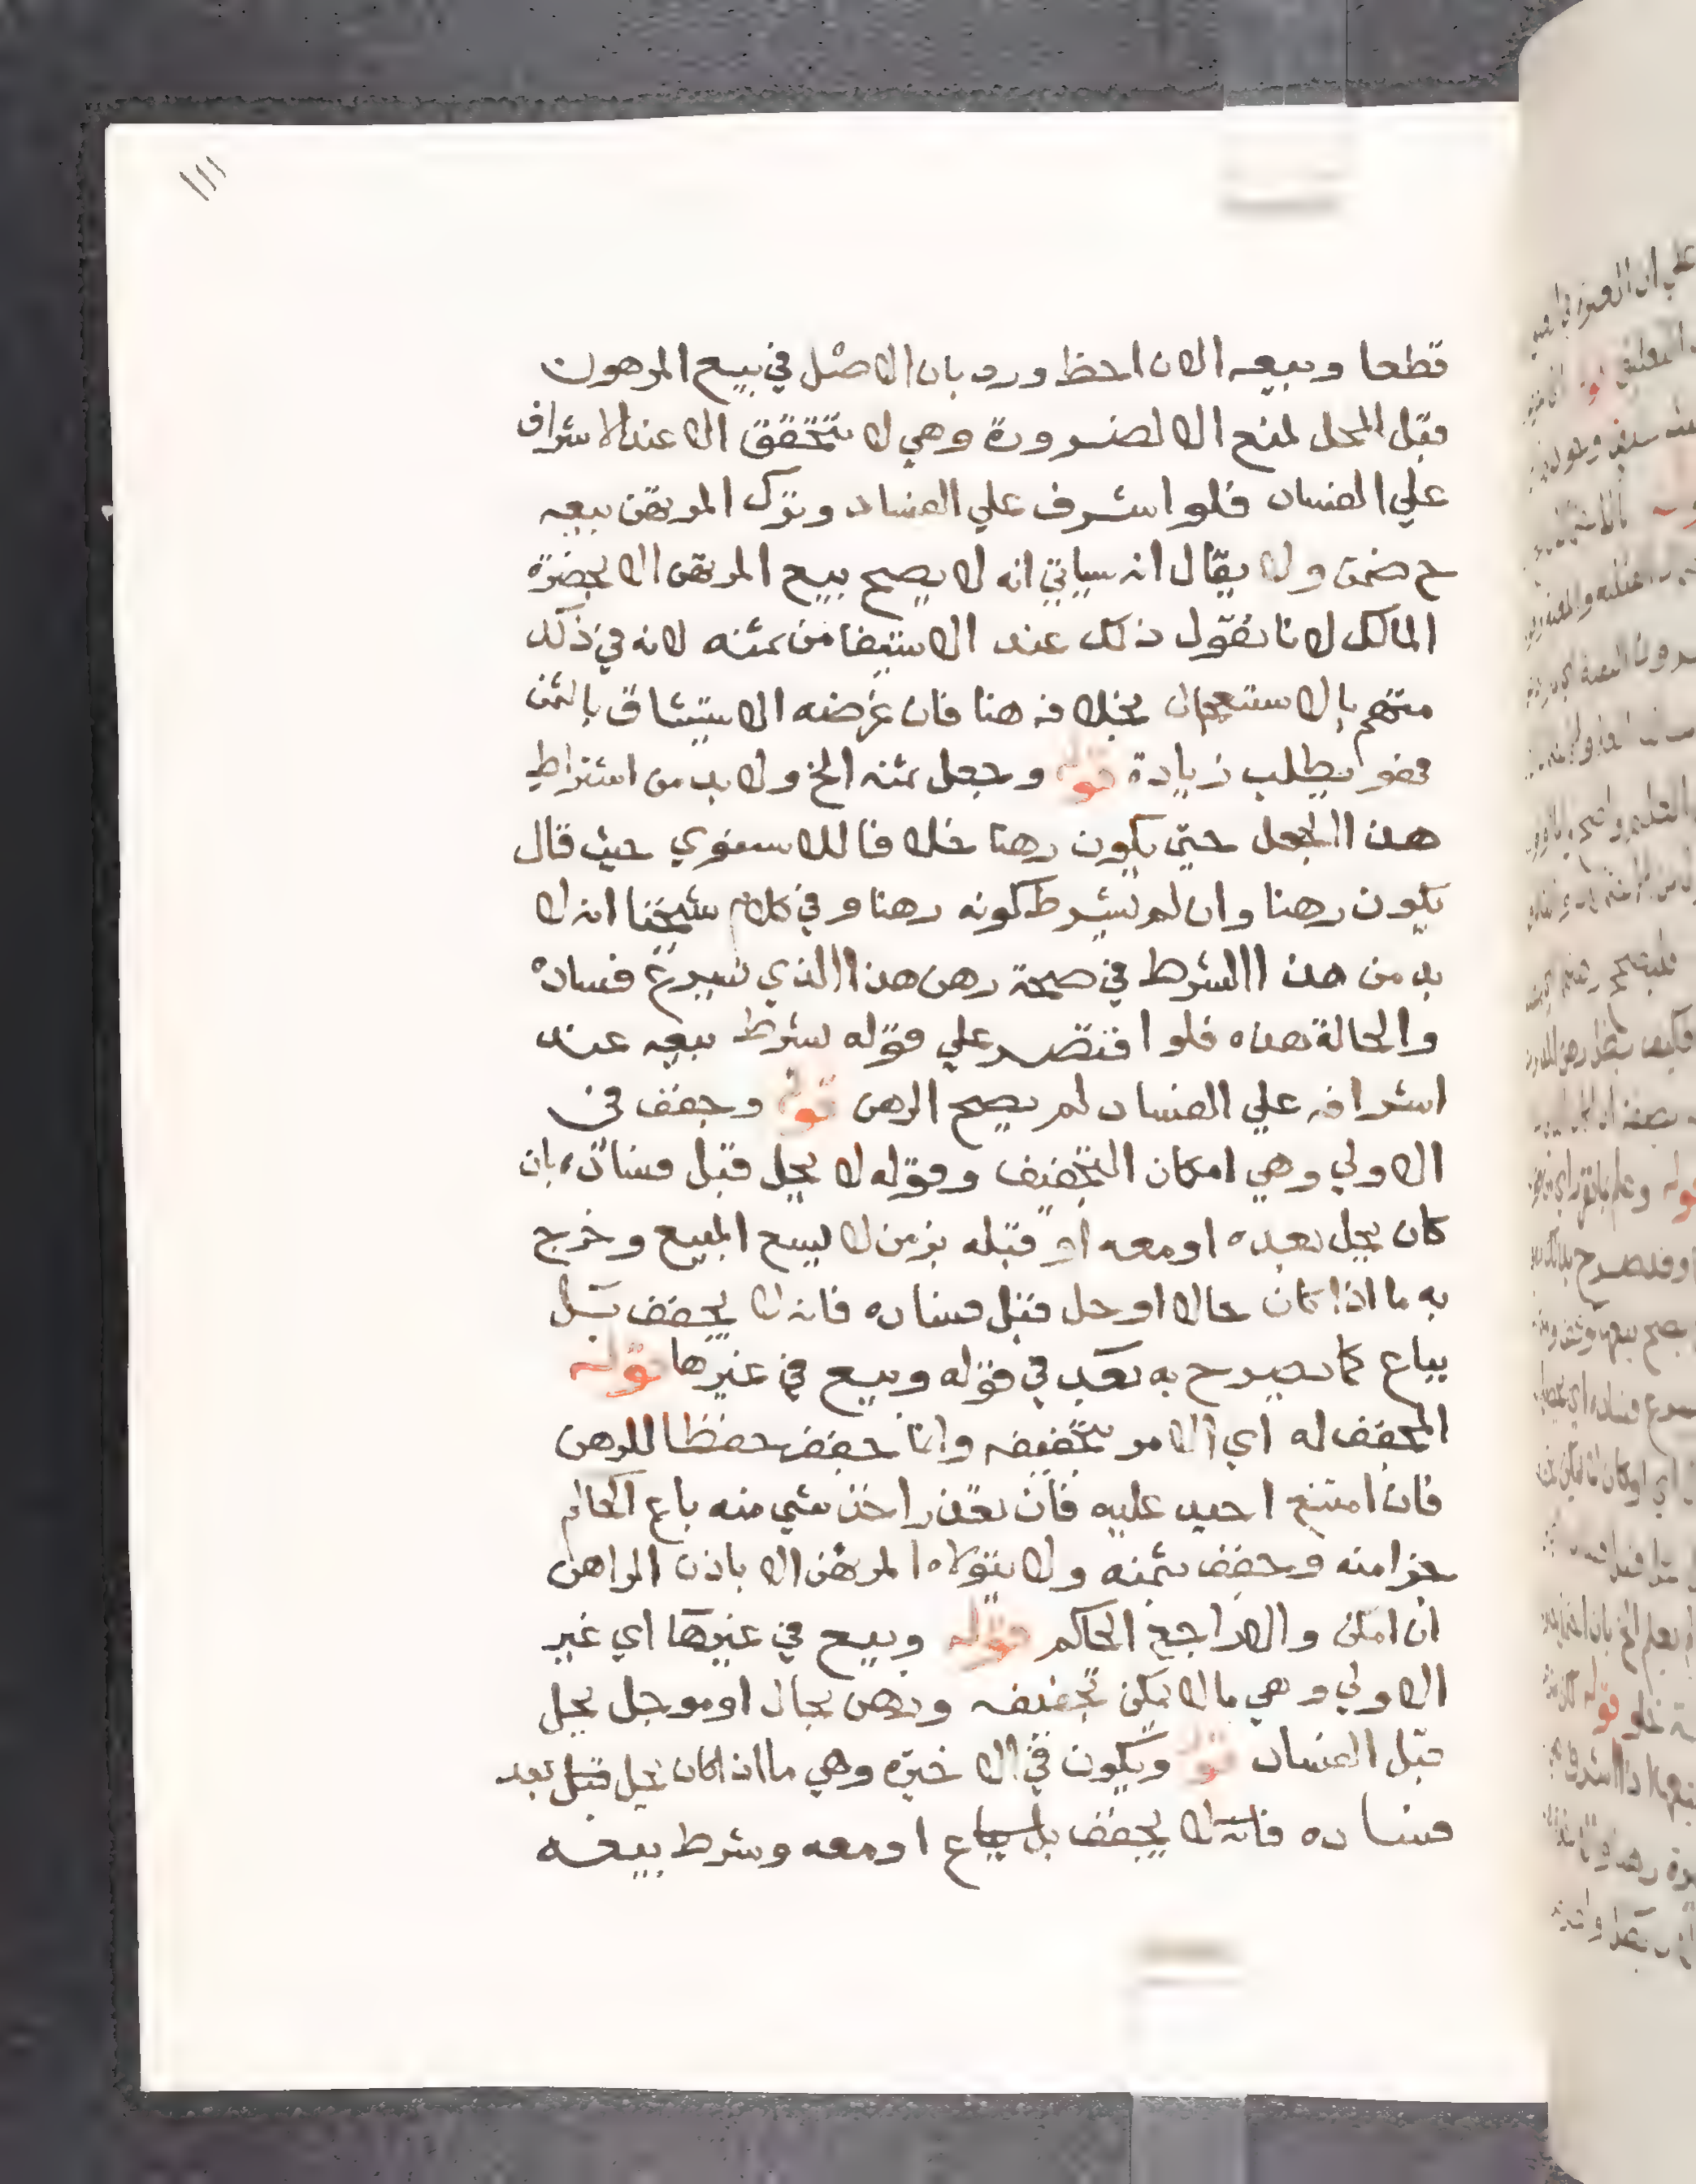 ١١١
قطعا وبيعه الان احظ ورد بان الاصل في بيع المرهون
قبل المحل لمنع الا لضرورة وهي لا تتحقق الا عند الاشراف
علي الفساد فلو اشرف علي الفساد وترك المرتهن بيعه
ح ضمن ولا يقال انه سياتي انه لا يصح بيع المرتهن الا بحضرة
المالك لانا نقول ذلك عند الاستيفا من ثمنه لانه في ذلك
متهم بالاستعجال بخلافه هنا فان غرضه الاستيثاق بالثمن
فهو يطلب زيادة قوله وجعل ثمنه الخ ولا بد من اشتراط
هذا الجعل حتي يكون رهنا خلافا للاسنوي حيث قال
يكون رهنا وان لم يشرط كونه رهنا وفي كلام شيخنا انه لا
بد من هذا الشرط في صحة رهن هذا الذي يسرع فساده
والحالة هذه فلو اقتصر علي قوله بشرط بيعه عند
اشرافه علي الفساد لم يصح الرهن قوله وجفف في
الاولي وهي امكان التجفيف وقوله لا يحل قبل فساده بان
كان يحل بعده او معه او قبله بزمن لا يسع البيع وخرج
به ما اذا كان حالا او حل قبل فساده فانه لا يجفف بل
يباع كما يصرح به بعد في قوله وبيع في غيرها قوله
المجفف له اي الامر بتجفيفه وانما جفف حفظا للرهن
فان امتنع اجبر عليه فان تعذر اخذ شي منه باع الحاكم
جزا منه وجفف بثمنه ولا يتولاه المرتهن الا باذن الراهن
ان امكن والا راجع الحاكم قوله وبيع في غيرها اي غير
الاولي وهي ما لا يمكن تجفيفه ورهن بحال او موجل يحل
قبل الفساد قوله ويكون في الاخيرة وهي ما اذا كان يحل قبل بعد
فساده فانه لا يجفف بل يباع او معه وشرط بيعه